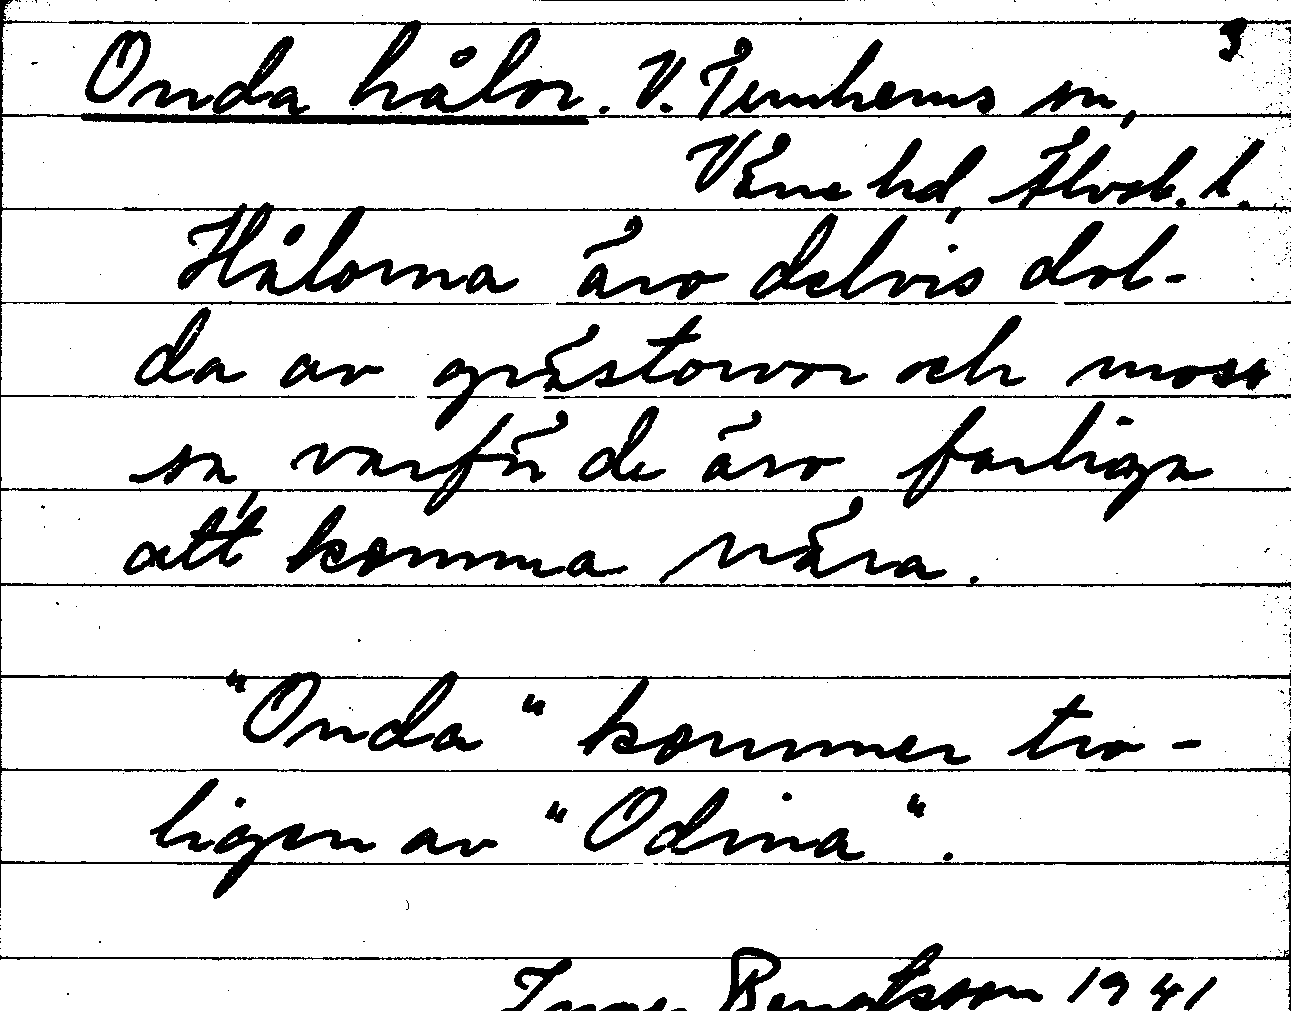 3
Onda hålor. V. Tunhems sn,
Väne hd, Älvsb. l.
Hålorna äro delvis dol-
da av grästorvor och mos-
sa, varför de äro farliga
att komma nära.
"Onda" kommer tro-
ligen av "Odina".
Bengtsson 1941